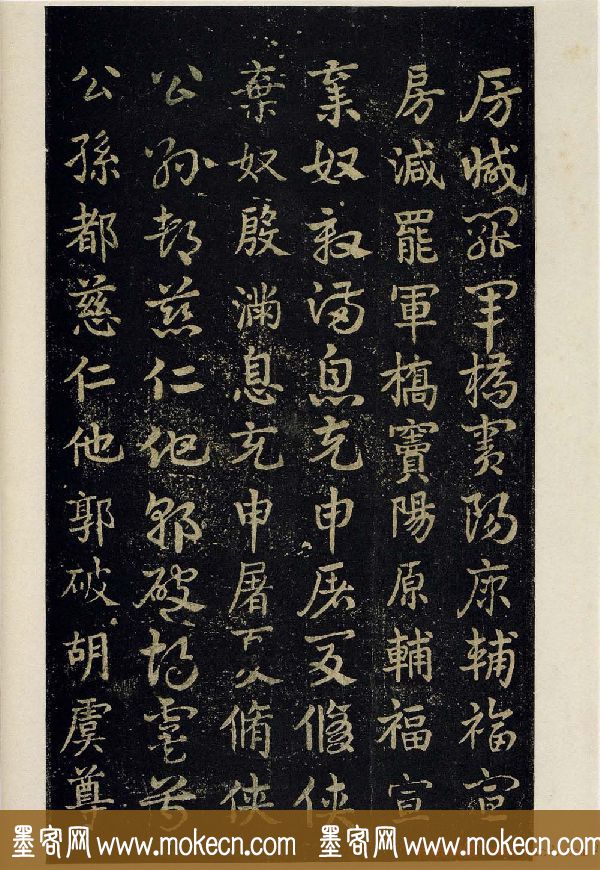 房減罷軍橋竇陽原輔福宣
房減罷軍橋竇陽原輔福宣
棄奴殷滿息充申屠夏脩俠
棄奴殷滿息充申屠夏脩俠
公孫都慈仁他郭破胡虞尊
公孫都慈仁他郭破胡虞尊
墨客网 www.mokecn.com 墨客网 www.mokecn.com